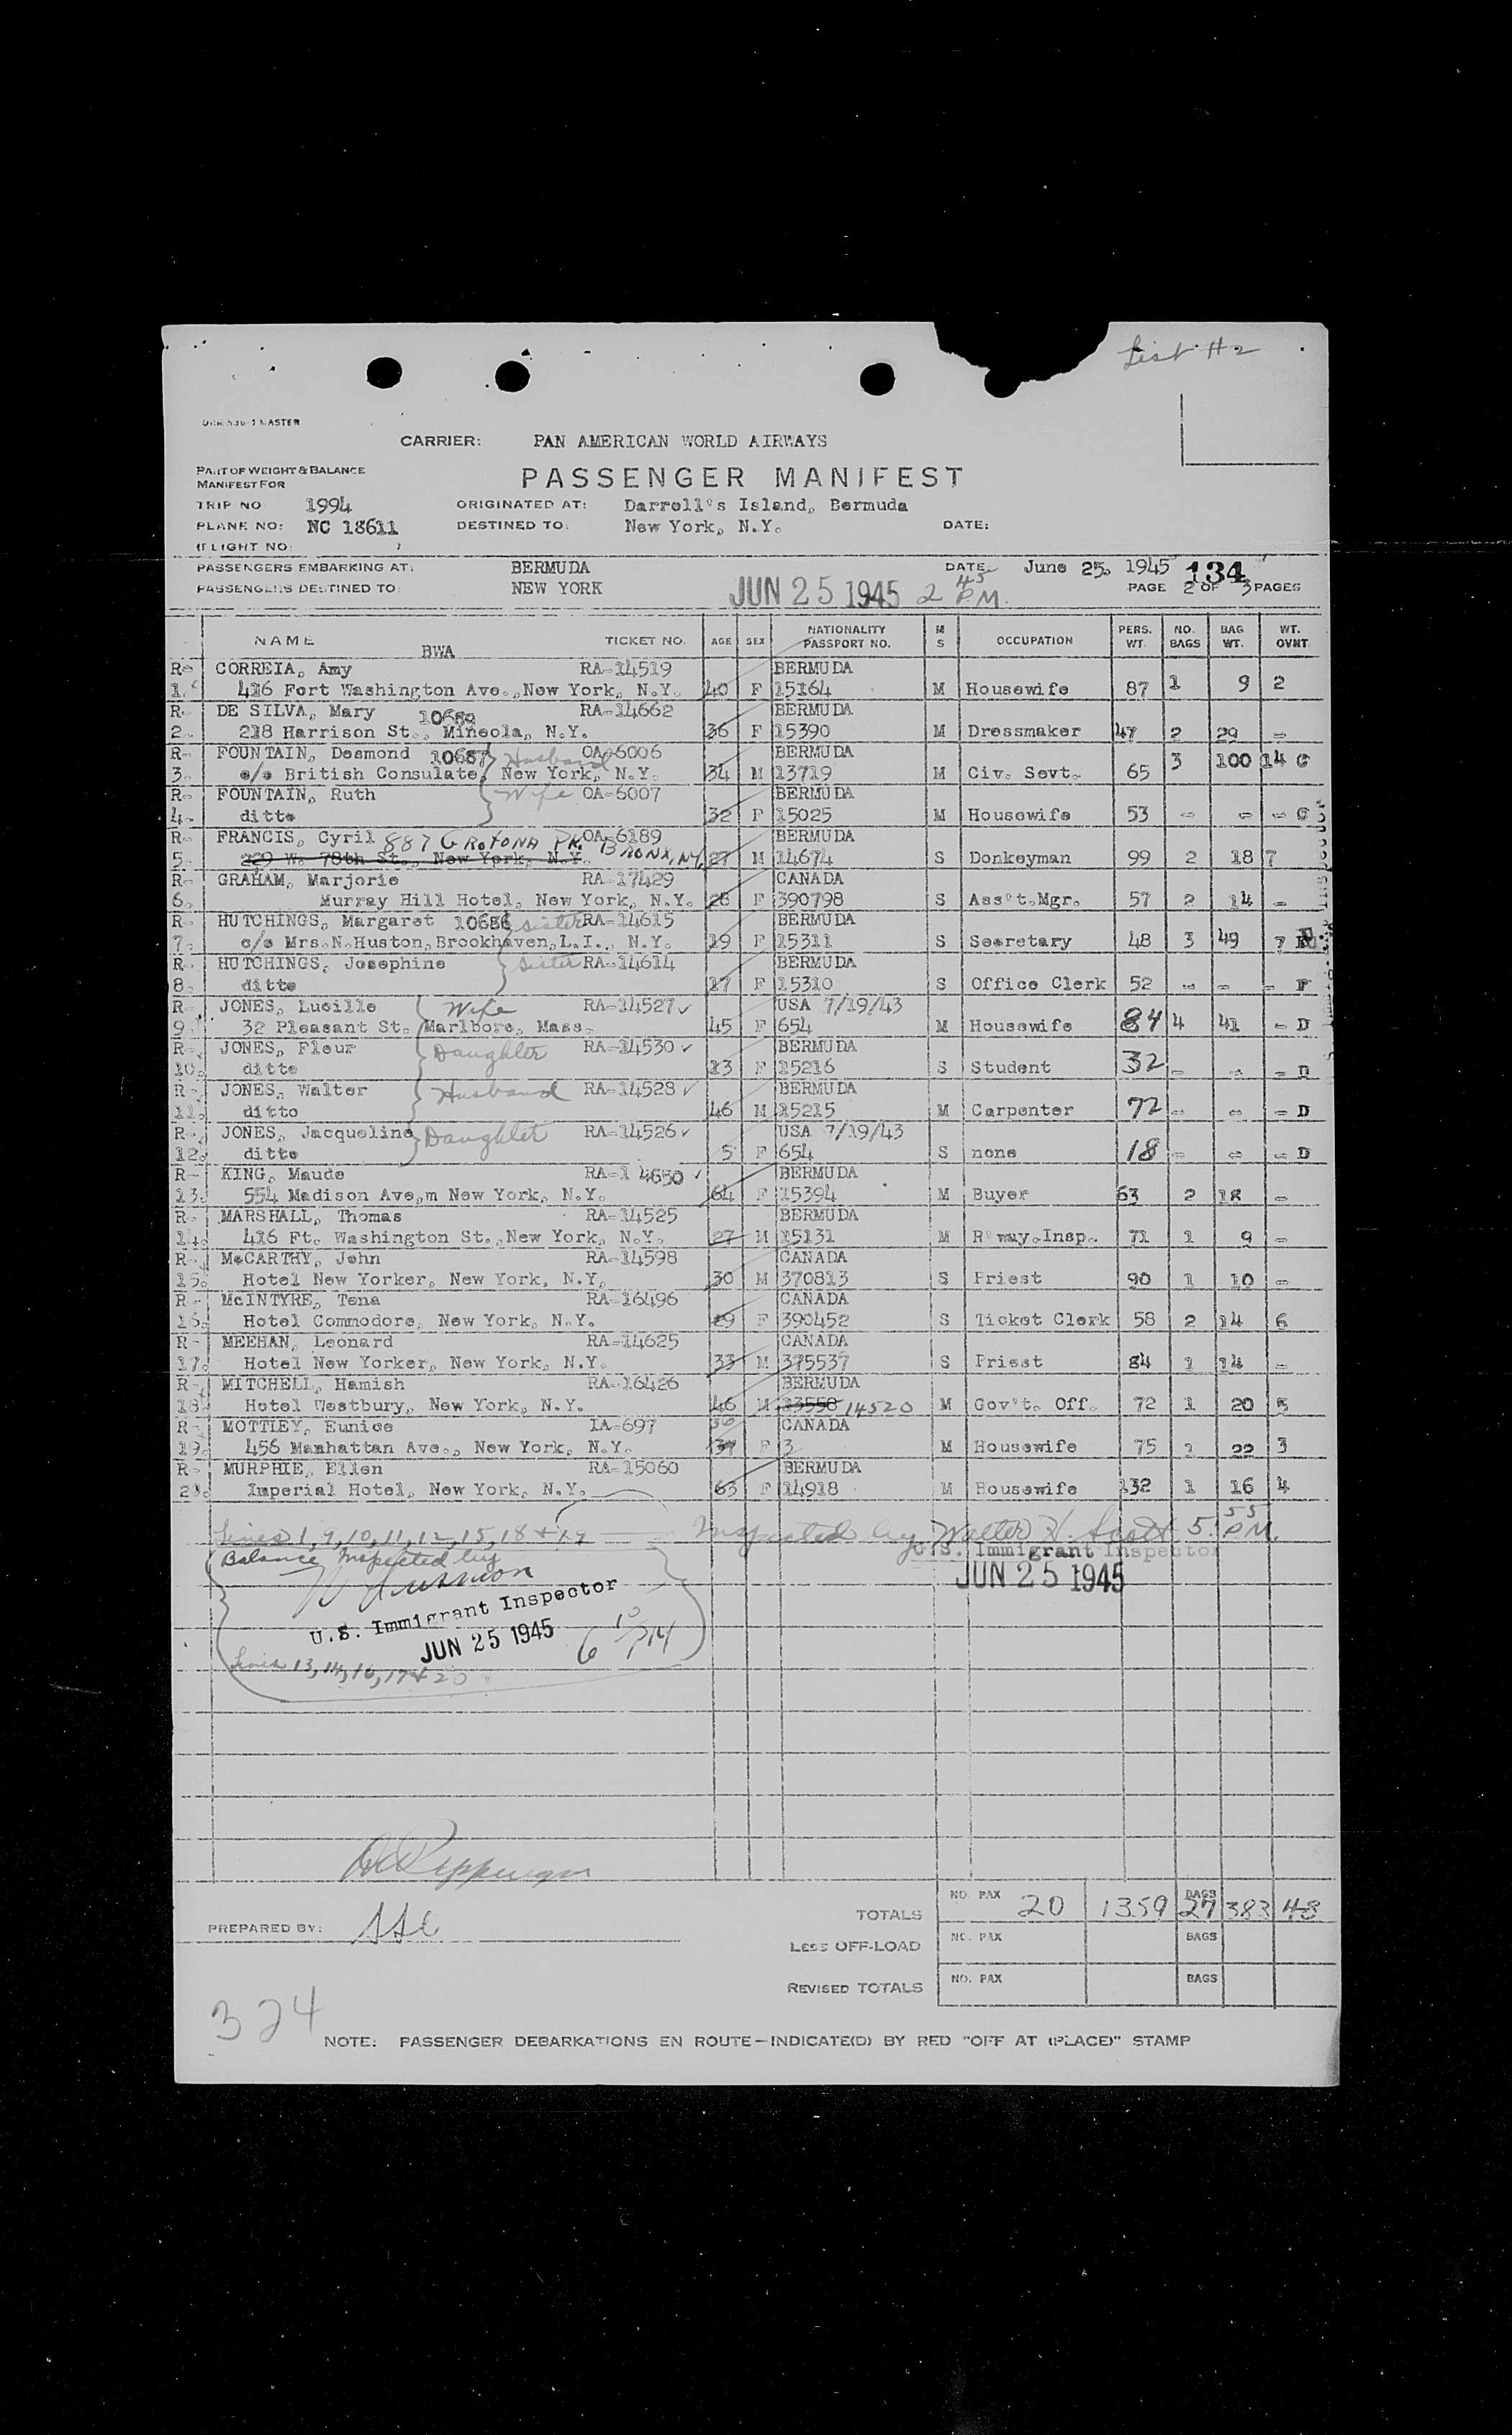 List # 2
CARRIER: PAN AMERICAN WORLD AIRWAYS
PART OF WEIGHT & BALANCE
MANIFEST FOR
PASSENGER MANIFEST
TRIP NO 1994 ORIGINATED AT: Darrell's Island, Bermuda
PLANE NO: NC 18611 DESTINED TO: New York, N.Y. DATE:
FLIGHT NO:
PASSENGERS EMBARKING AT: BERMUDA DATE June 25, 1945 134
PASSENGERS DESTINED TO: NEW YORK JUN 25 1945 2 45 P.M. PAGE 2 OF 3 PAGES
NAME BWA TICKET NO. AGE SEX NATIONALITY PASSPORT NO. M S OCCUPATION PERS. WT. NO. BAGS BAG WT. WT. OVNT
R- CORREIA, Amy RA-14519 BERMUDA
1. 416 Fort Washington Ave., New York, N.Y. 40 F 15164 M Housewife 87 1 9 2
R- DE SILVA, Mary 10689 RA-14662 BERMUDA
2. 218 Harrison St., Mineola, N.Y. 36 F 15390 M Dressmaker 47 2 29 -
R- FOUNTAIN, Desmond 10687 Husband OA-6006 BERMUDA
3. c/o British Consulate, New York, N.Y. 34 M 13719 M Civ. Sevt. 65 3 100 14 G
R- FOUNTAIN, Ruth Wife OA-6007 BERMUDA
4. ditto 32 F 15025 M Housewife 53 - - - G
R- FRANCIS, Cyril 887 CROTONA PK. BRONX, NY. OA-6189 BERMUDA
5. 229 W. 78th St., New York, N.Y. 27 M 14674 S Donkeyman 99 2 18 7
R- GRAHAM, Marjorie RA-17429 CANADA
6. Murray Hill Hotel, New York, N.Y. 28 F 390798 S Ass't.Mgr. 57 2 14 -
R- HUTCHINGS, Margaret 10686 Sister RA-14615 BERMUDA
7. c/o Mrs.N.Huston,Brookhaven,L.I., N.Y. 19 F 15311 S Secretary 48 3 49 7 F
R- HUTCHINGS, Josephine Sister RA-14614 BERMUDA
8. ditto 17 F 15310 S Office Clerk 52 - - - F
R- JONES, Lucille Wife RA-14527 ✓ USA 7/19/43
9. 32 Pleasant St. Marlboro, Mass. 45 F 654 M Housewife 84 4 41 - D
R- JONES, Fleur Daughter RA-14530 ✓ BERMUDA
10. ditto 13 F 15216 S Student 32 - - - D
R- JONES, Walter Husband RA-14528 ✓ BERMUDA
11. ditto 46 M 15215 M Carpenter 72 - - - D
R- JONES, Jacqueline Daughter RA-14526 ✓ USA 7/19/43
12. ditto 5 F 654 S none 18 - - - D
R- KING, Maude RA-1 4650 ✓ BERMUDA
13. 554 Madison Ave,m New York, N.Y. 64 F 15394 M Buyer 63 2 18 -
R- MARSHALL, Thomas RA-14525 BERMUDA
14. 416 Ft. Washington St., New York, N.Y. 27 M 15131 M R'way.Insp. 71 1 9 -
R- McCARTHY, John RA-14598 CANADA
15. Hotel New Yorker, New York, N.Y. 30 M 370813 S Priest 90 1 10 -
R- McINTYRE, Tena RA-16496 CANADA
16. Hotel Commodore, New York, N.Y. 29 F 390452 S Ticket Clerk 58 2 14 6
R- MEEHAN, Leonard RA-14625 CANADA
17. Hotel New Yorker, New York, N.Y. 33 M 375537 S Priest 84 1 14 -
R- MITCHELL, Hamish RA-16426 BERMUDA
18. Hotel Westbury, New York, N.Y. 46 M 13558 14520 M Gov't. Off. 72 1 20 5
R- MOTTLEY, Eunice IA-697 36 CANADA
19. 456 Manhattan Ave., New York, N.Y. F 3 M Housewife 75 1 22 3
R- MURPHIE, Ellen RA-15060 BERMUDA
20. Imperial Hotel, New York, N.Y. 63 F 14918 M Housewife 132 1 16 4
Lines 1, 9, 10, 11, 12, 15, 18 + 19 Inspected by Walter H. Scott 5 55 P.M.
Balance Inspected by U.S. Immigrant Inspector
JUN 25 1945
U.S. Immigrant Inspector
JUN 25 1945 6 10 PM
Lines 13, 14, 16, 17 + 20
TOTALS NO. PAX 20 1359 BAGS 27 383 48
PREPARED BY:
LESS OFF-LOAD NO. PAX BAGS
REVISED TOTALS NO. PAX BAGS
324
NOTE: PASSENGER DEBARKATIONS EN ROUTE—INDICATE(D) BY RED "OFF AT (PLACE)" STAMP